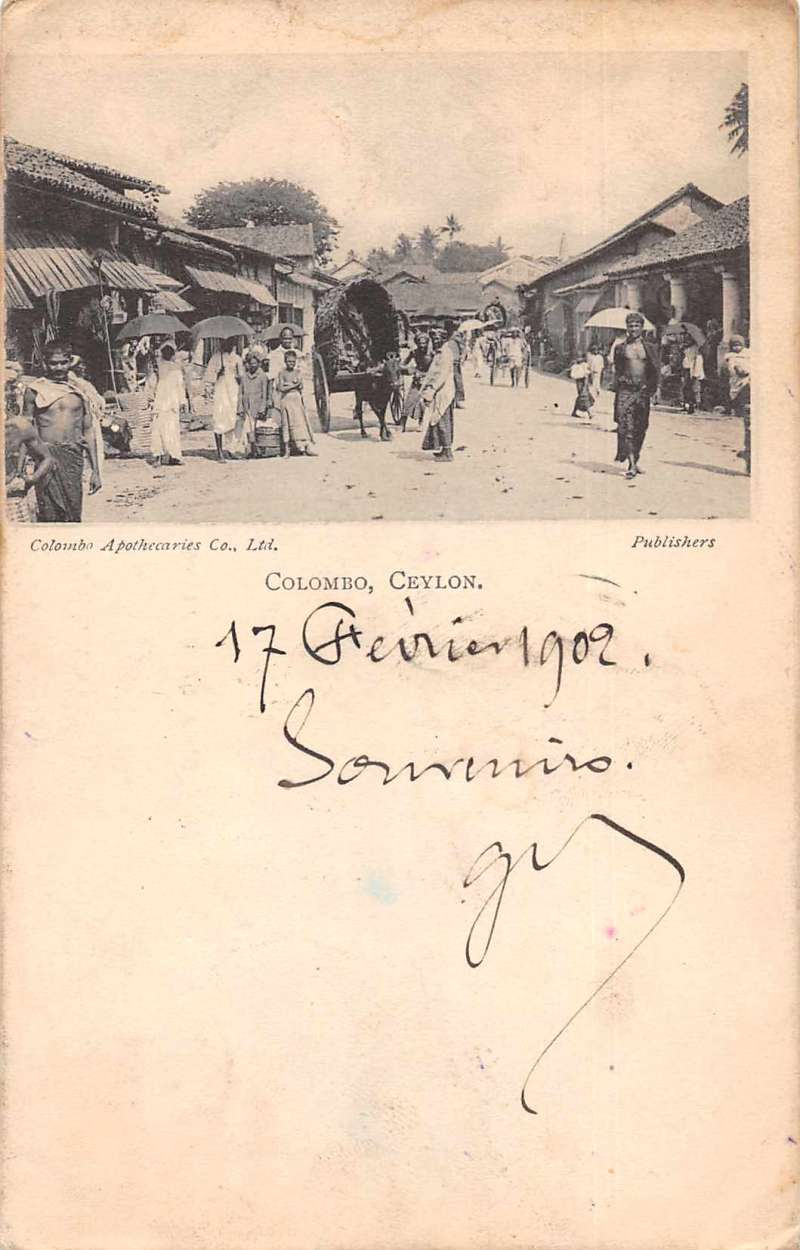 Colombo Apothecaries Co., Ltd. Publishers
COLOMBO, CEYLON.
17 Février 1902.
Souvenirs.